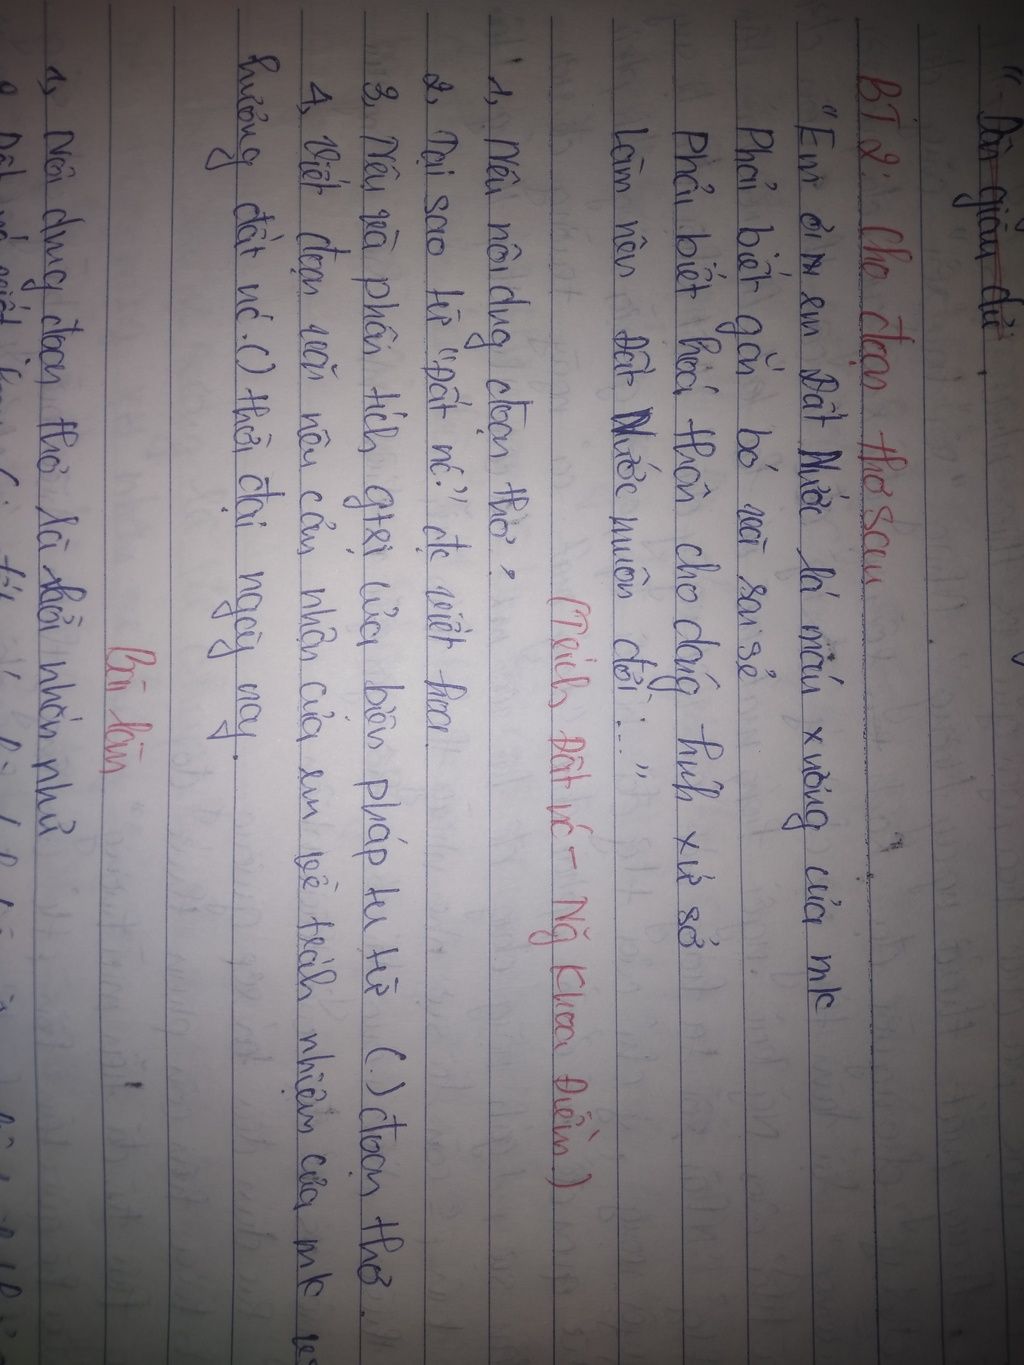 "Dân giàu đủ
BT 2: Cho đoạn thơ sau
"Em ơi em Đất Nước là máu xương của mk
Phải biết gắn bó và san sẻ
Phải biết hoá thân cho dáng hình xứ sở
Làm nên Đất Nước muôn đời..."
(Trích Đất nc - Ng Khoa Điềm)
1, Nêu nôi dug đoạn thơ?
2, Tại sao từ "Đất nc" đc viết hoa
3, Nêu và phân tích gtrị của biện pháp tu từ (.) đoạn thơ.
4, Viết đoạn văn nêu cảm nhận của em về trách nhiệm của mk
hướng đất nc (.) thời đại ngày nay.
Bài làm
1, Nôi dung đoạn thơ là lời nhắn nhủ